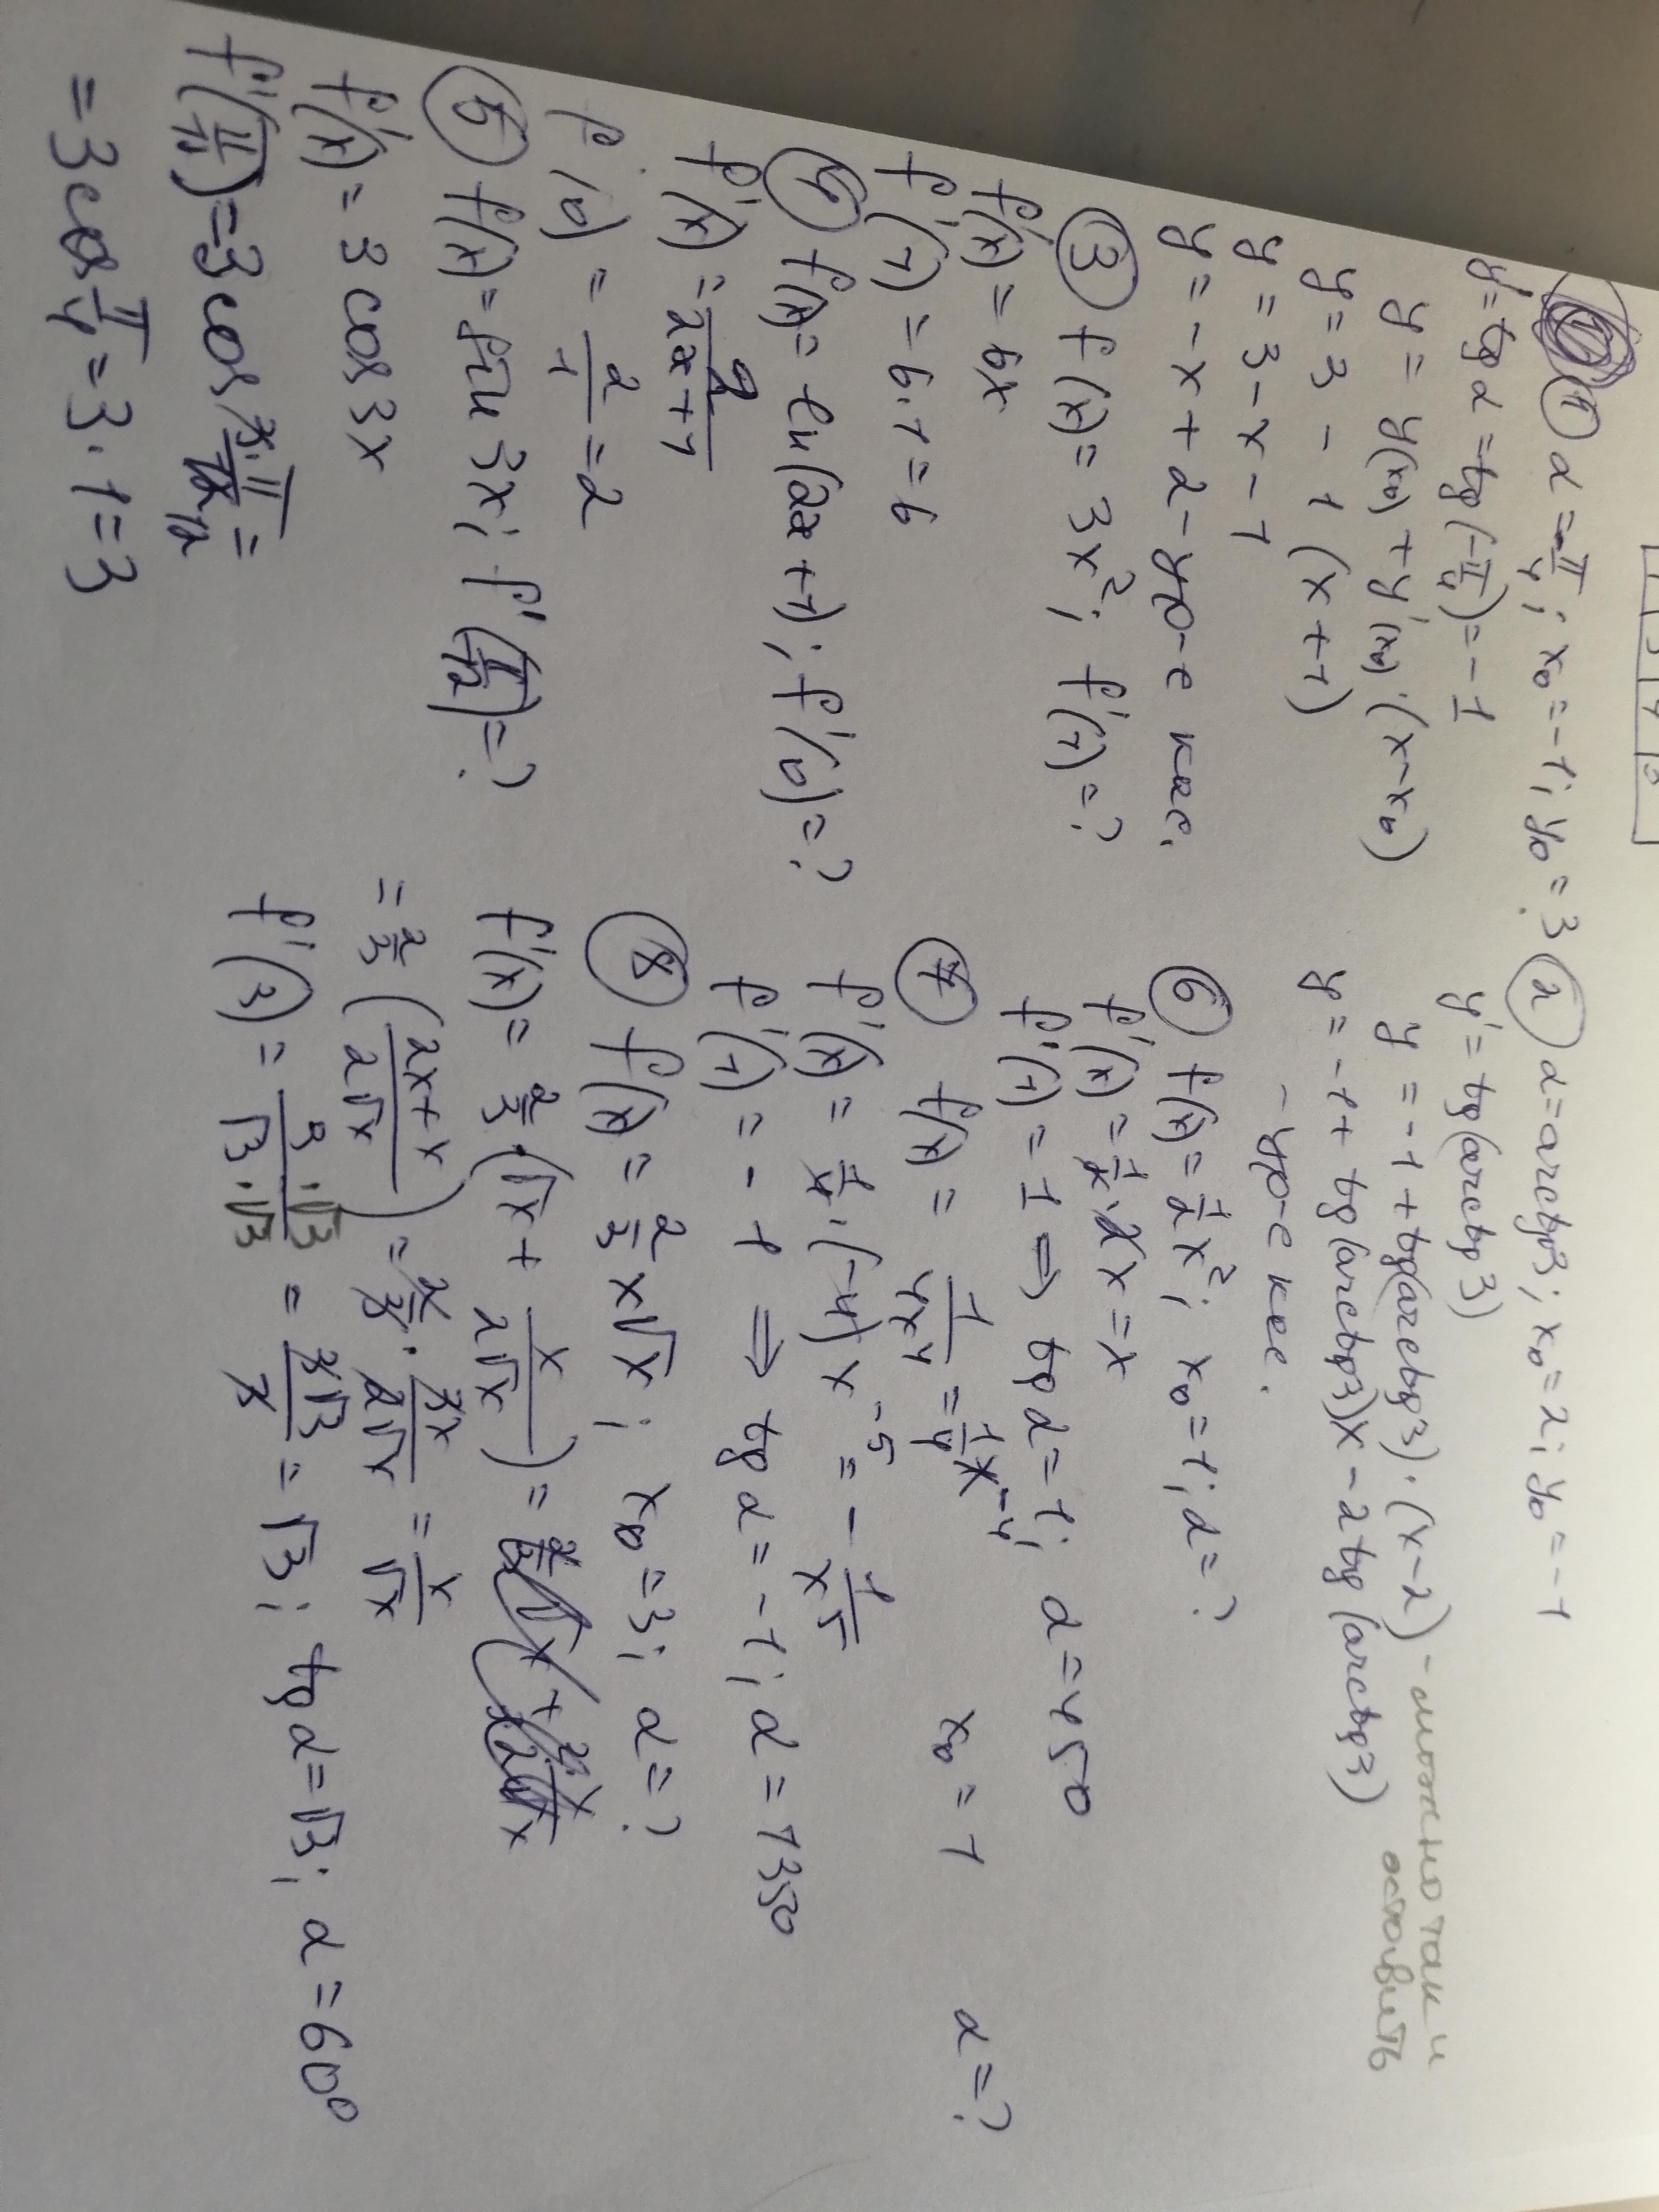 ① α = -π/4; x₀ = -1; y₀ = 3
y' = tg α = tg(-π/4) = -1
y = y(x₀) + y'(x₀)·(x-x₀)
y = 3 - 1(x+1)
y = 3 - x - 1
y = -x + 2 - ур-е кас.
③ f(x) = 3x²; f'(1) = ?
f'(x) = 6x
f'(1) = 6·1 = 6
④ f(x) = ln(2x+1); f'(0) = ?
f'(x) = 2/(2x+1)
f'(0) = 2/1 = 2
⑤ f(x) = sin 3x; f'(π/12) = ?
f'(x) = 3 cos 3x
f'(π/12) = 3 cos 3·π/12 =
= 3 cos π/4 = 3·1 = 3
② α = arctg3; x₀ = 2; y₀ = -1
y' = tg(arctg3)
y = -1 + tg(arctg3)·(x-2) - можно так и
оставить
y = -1 + tg(arctg3)x - 2tg(arctg3)
- ур-е кас.
⑥ f(x) = 1/2 x²; x₀ = 1; α = ?
f'(x) = 1/2·2x = x
f'(1) = 1 ⇒ tg α = 1; α = 45°
⑦ f(x) = 1/4x⁴ = 1/4 x⁻⁴; x₀ = 1 α = ?
f'(x) = 1/4·(-4)x⁻⁵ = -1/x⁵
f'(1) = -1 ⇒ tg α = -1; α = 135°
⑧ f(x) = 2/3 x√x; x₀ = 3; α = ?
f'(x) = 2/3·(√x + x/2√x) =
= 2/3((2x+x)/2√x) = 2/3·3x/2√x = x/√x
f'(3) = 3·√3/√3·√3 = 3√3/3 = √3; tg α = √3; α = 60°